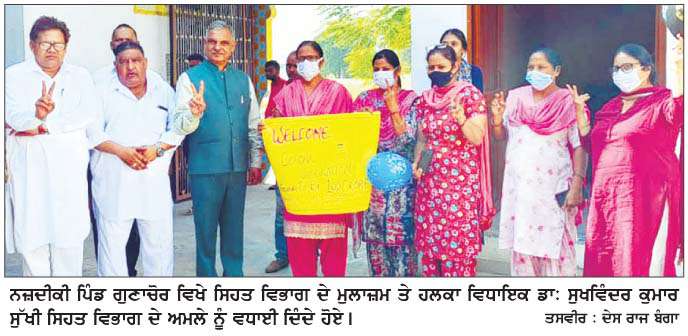 WELCOME
ਨਜ਼ਦੀਕੀ ਪਿੰਡ ਗੁਣਾਚੋਰ ਵਿਖੇ ਸਿਹਤ ਵਿਭਾਗ ਦੇ ਮੁਲਾਜ਼ਮ ਤੇ ਹਲਕਾ ਵਿਧਾਇਕ ਡਾ: ਸੁਖਵਿੰਦਰ ਕੁਮਾਰ
ਸੁੱਖੀ ਸਿਹਤ ਵਿਭਾਗ ਦੇ ਅਮਲੇ ਨੂੰ ਵਧਾਈ ਦਿੰਦੇ ਹੋਏ। ਤਸਵੀਰ : ਦੇਸ ਰਾਜ ਬੰਗਾ